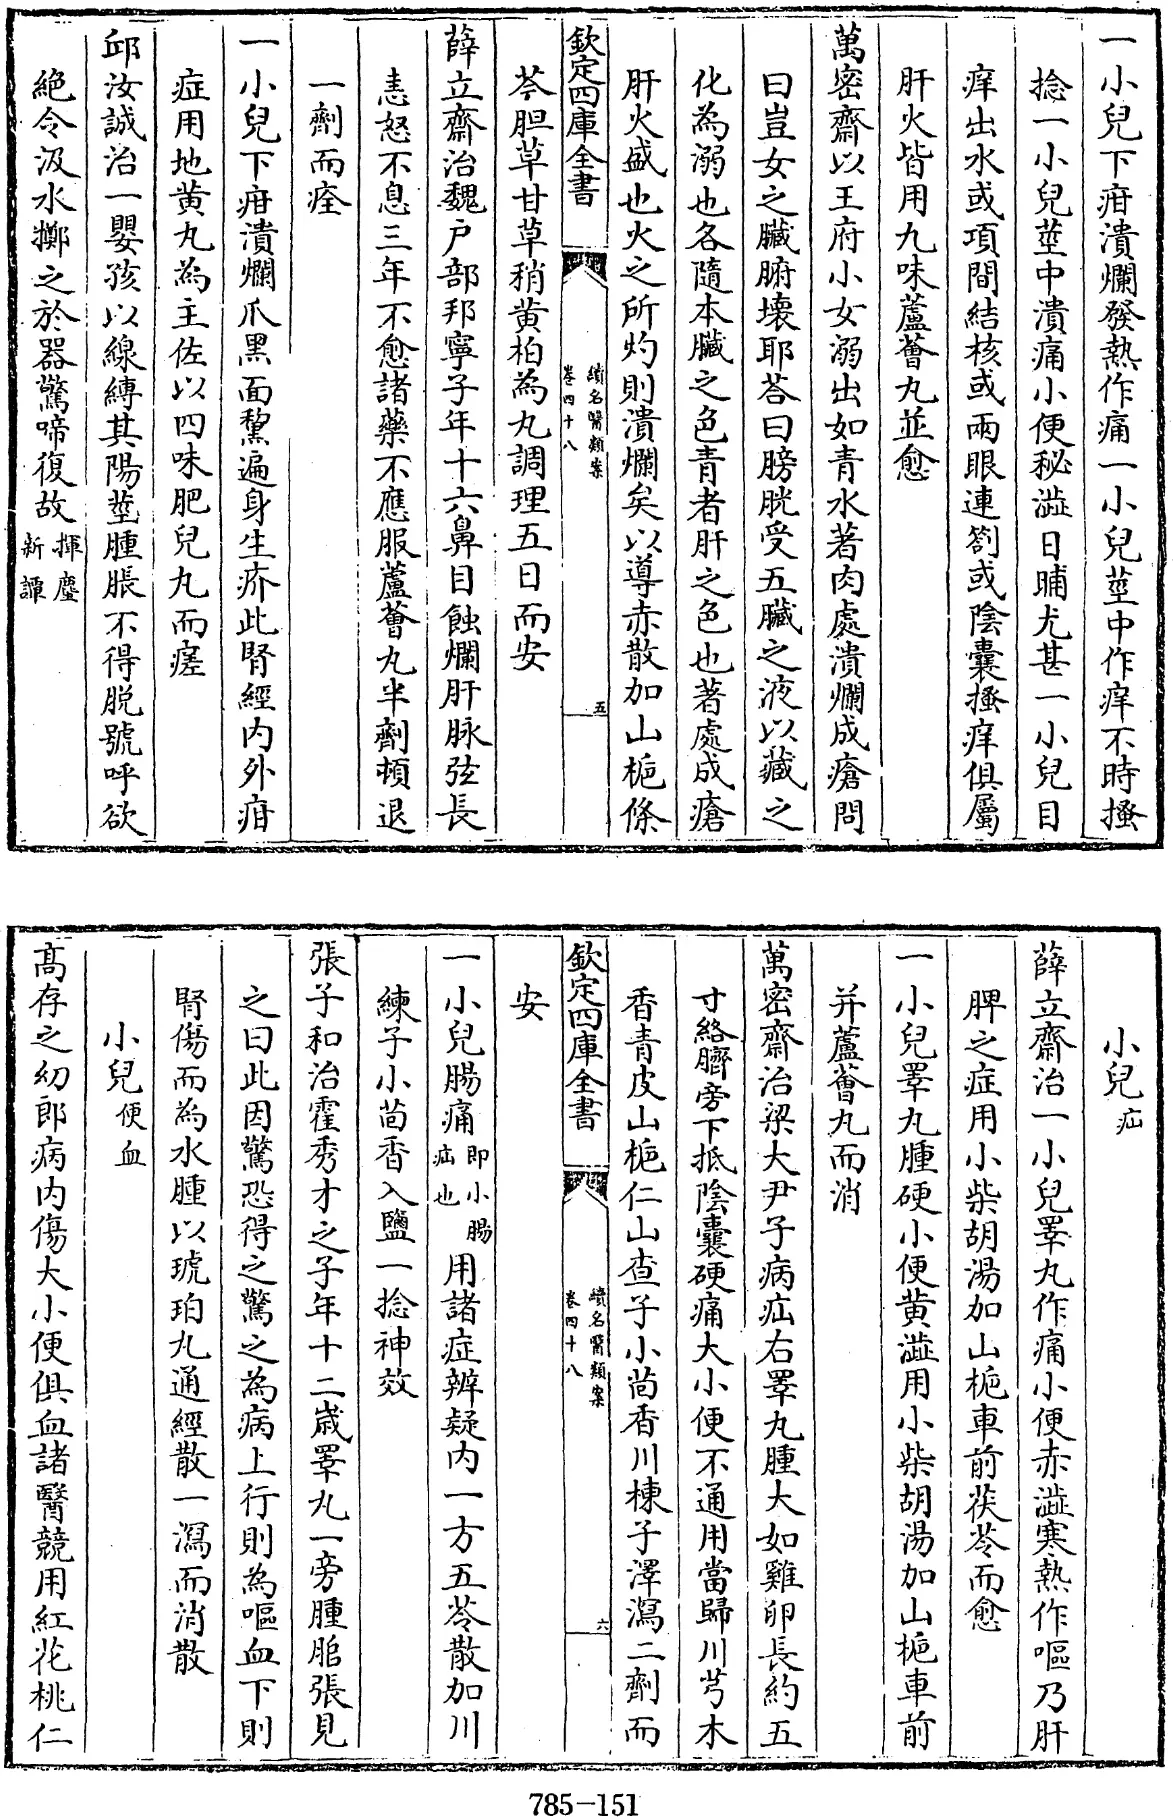 一小兒下疳潰爛發熱作痛一小兒莖中作痒不時搔
捻一小兒莖中潰痛小便秘澁日晡尤甚一小兒目
痒出水或項間結核或兩眼連劄或陰囊搔痒俱屬
肝火皆用九味蘆薈丸並愈
萬密齋以王府小女溺出如青水著肉處潰爛成瘡問
曰豈女之臟腑壞耶荅曰膀胱受五臟之液以藏之
化為溺也各隨本臟之色青者肝之色也著處成瘡
肝火盛也火之所灼則潰爛矣以導赤散加山梔條
欽定四庫全書
續名醫類案
卷四十八
五
芩胆草甘草稍黄柏為丸調理五日而安
薛立齋治魏户部邦寧子年十六鼻目蝕爛肝脉弦長
恚怒不息三年不愈諸藥不應服蘆薈丸半劑頓退
一劑而痊
一小兒下疳潰爛爪黑面黧遍身生疥此腎經内外疳
症用地黄丸為主佐以四味肥兒丸而瘥
邱汝誠治一嬰孩以線縳其陽莖腫脹不得脱號呼欲
絶令汲水擲之於器驚啼復故揮麈
新譚
小兒疝
薛立齋治一小兒睪丸作痛小便赤澁寒熱作嘔乃肝
脾之症用小柴胡湯加山梔車前茯苓而愈
一小兒睪丸腫硬小便黄澁用小柴胡湯加山梔車前
并蘆薈丸而消
萬密齋治梁大尹子病疝右睪丸腫大如雞卵長約五
寸絡臍旁下抵陰囊硬痛大小便不通用當歸川芎木
香青皮山梔仁山查子小茴香川楝子澤瀉二劑而
欽定四庫全書
續名醫類案
卷四十八
六
安
一小兒腸痛即小腸
疝也用諸症辨疑内一方五苓散加川
練子小茴香入鹽一捻神效
張子和治霍秀才之子年十二歲睪丸一旁腫脹張見
之曰此因驚恐得之驚之為病上行則為嘔血下則
腎傷而為水腫以琥珀丸通經散一瀉而消散
小兒便血
髙存之幼郎病内傷大小便俱血諸醫競用紅花桃仁
785-151